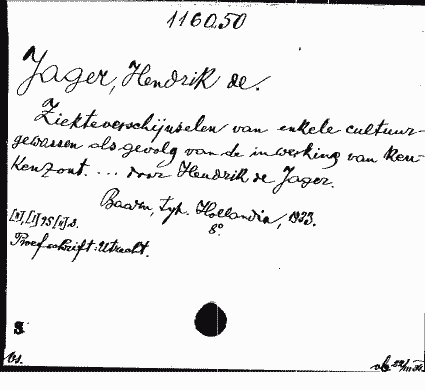 116050
Jager, Hendrik de.
Ziekteverschijnselen van enkele cultuur-
gewassen als gevolg van de inwerking van keu-
kenzout. ... door Hendrik de Jager.
Baarn, typ. Hollandia, 1923.
8°
Proefschrift: Utrecht.